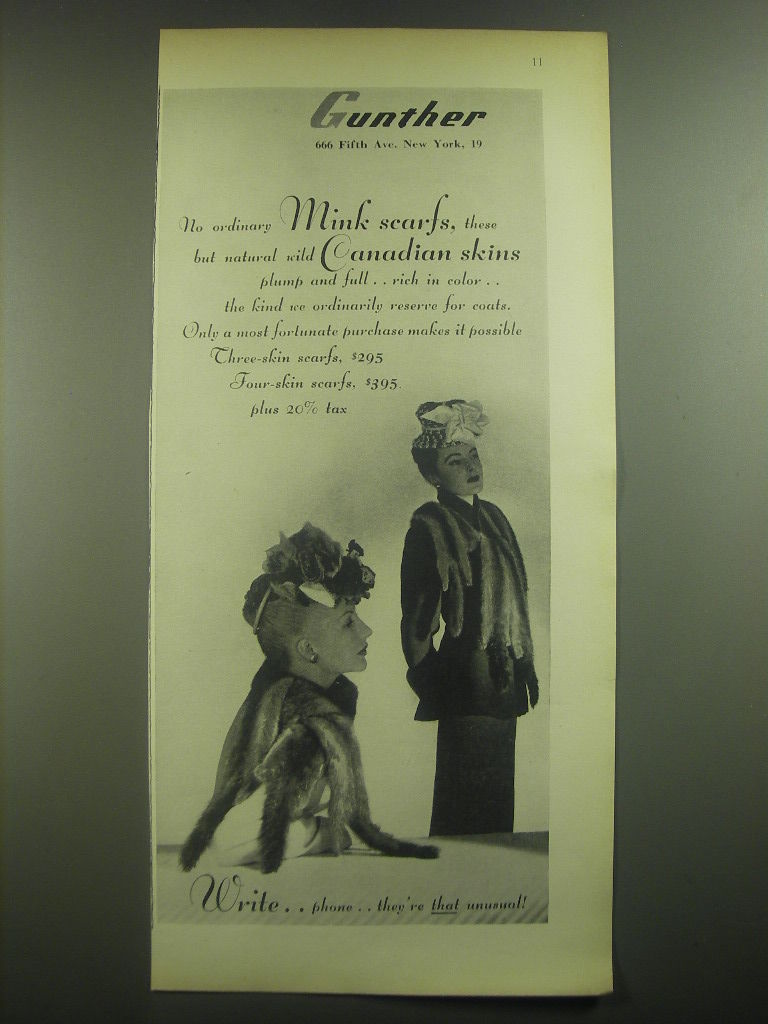 11
Gunther
666 Fifth Ave. New York, 19
No ordinary Mink scarfs, these
but natural wild Canadian skins
plump and full . . rich in color . .
the kind we ordinarily reserve for coats.
Only a most fortunate purchase makes it possible
Three-skin scarfs, $295
Four-skin scarfs, $395.
plus 20% tax
Write . . phone . . they're that unusual!